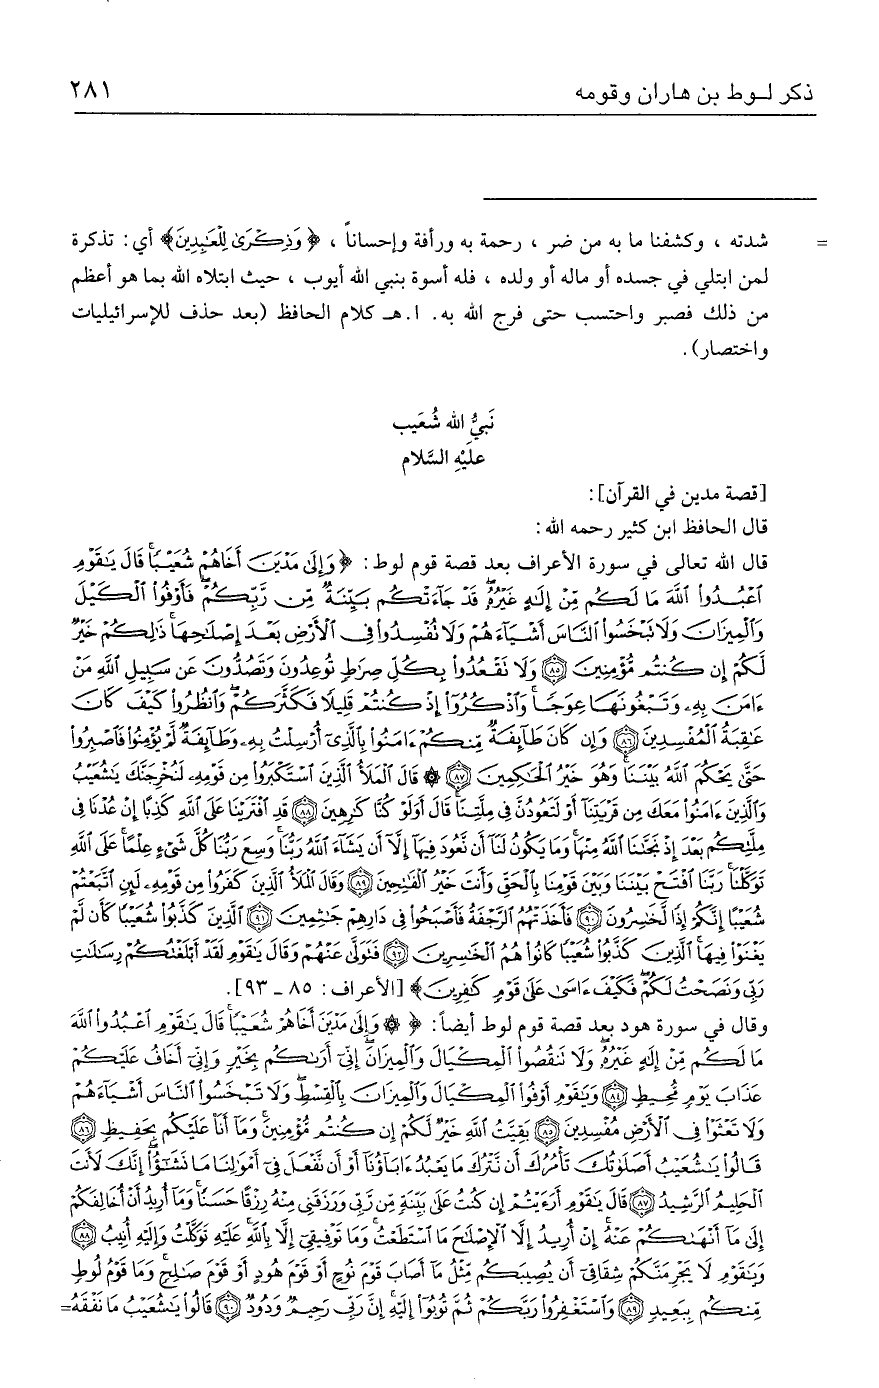 ذكر لـوط بن هاران وقومه ٢٨١
= شدته ، وكشفنا ما به من ضر ، رحمة به ورأفة وإحساناً ، ﴿ وَذِكْرَىٰ لِلْعَٰبِدِينَ﴾ أي: تذكرة
لمن ابتلي في جسده أو ماله أو ولده ، فله أسوة بنبي الله أيوب ، حيث ابتلاه الله بما هو أعظم
من ذلك فصبر واحتسب حتى فرج الله به. ا.هـ كلام الحافظ (بعد حذف للإسرائيليات
واختصار).
نَبيُّ الله شُعَيب
عليْهِ السَّلام
[قصة مدين في القرآن]:
قال الحافظ ابن كثير رحمه الله:
قال الله تعالى في سورة الأعراف بعد قصة قوم لوط: ﴿ وَإِلَىٰ مَدْيَنَ أَخَاهُمْ شُعَيْبًا ۚ قَالَ يَٰقَوْمِ
ٱعْبُدُوا۟ ٱللَّهَ مَا لَكُم مِّنْ إِلَٰهٍ غَيْرُهُۥ ۖ قَدْ جَآءَتْكُم بَيِّنَةٌ مِّن رَّبِّكُمْ ۖ فَأَوْفُوا۟ ٱلْكَيْلَ
وَٱلْمِيزَانَ وَلَا تَبْخَسُوا۟ ٱلنَّاسَ أَشْيَآءَهُمْ وَلَا تُفْسِدُوا۟ فِى ٱلْأَرْضِ بَعْدَ إِصْلَٰحِهَا ۚ ذَٰلِكُمْ خَيْرٌ
لَّكُمْ إِن كُنتُم مُّؤْمِنِينَ ﴿٨٥﴾ وَلَا تَقْعُدُوا۟ بِكُلِّ صِرَٰطٍ تُوعِدُونَ وَتَصُدُّونَ عَن سَبِيلِ ٱللَّهِ مَنْ
ءَامَنَ بِهِۦ وَتَبْغُونَهَا عِوَجًا ۚ وَٱذْكُرُوٓا۟ إِذْ كُنتُمْ قَلِيلًا فَكَثَّرَكُمْ ۖ وَٱنظُرُوا۟ كَيْفَ كَانَ
عَٰقِبَةُ ٱلْمُفْسِدِينَ ﴿٨٦﴾ وَإِن كَانَ طَآئِفَةٌ مِّنكُمْ ءَامَنُوا۟ بِٱلَّذِىٓ أُرْسِلْتُ بِهِۦ وَطَآئِفَةٌ لَّمْ يُؤْمِنُوا۟ فَٱصْبِرُوا۟
حَتَّىٰ يَحْكُمَ ٱللَّهُ بَيْنَنَا ۚ وَهُوَ خَيْرُ ٱلْحَٰكِمِينَ ﴿٨٧﴾ ۞ قَالَ ٱلْمَلَأُ ٱلَّذِينَ ٱسْتَكْبَرُوا۟ مِن قَوْمِهِۦ لَنُخْرِجَنَّكَ يَٰشُعَيْبُ
وَٱلَّذِينَ ءَامَنُوا۟ مَعَكَ مِن قَرْيَتِنَآ أَوْ لَتَعُودُنَّ فِى مِلَّتِنَا ۚ قَالَ أَوَلَوْ كُنَّا كَٰرِهِينَ ﴿٨٨﴾ قَدِ ٱفْتَرَيْنَا عَلَى ٱللَّهِ كَذِبًا إِنْ عُدْنَا فِى
مِلَّتِكُم بَعْدَ إِذْ نَجَّىٰنَا ٱللَّهُ مِنْهَا ۚ وَمَا يَكُونُ لَنَآ أَن نَّعُودَ فِيهَآ إِلَّآ أَن يَشَآءَ ٱللَّهُ رَبُّنَا ۚ وَسِعَ رَبُّنَا كُلَّ شَىْءٍ عِلْمًا ۚ عَلَى ٱللَّهِ
تَوَكَّلْنَا ۚ رَبَّنَا ٱفْتَحْ بَيْنَنَا وَبَيْنَ قَوْمِنَا بِٱلْحَقِّ وَأَنتَ خَيْرُ ٱلْفَٰتِحِينَ ﴿٨٩﴾ وَقَالَ ٱلْمَلَأُ ٱلَّذِينَ كَفَرُوا۟ مِن قَوْمِهِۦ لَئِنِ ٱتَّبَعْتُمْ
شُعَيْبًا إِنَّكُمْ إِذًا لَّخَٰسِرُونَ ﴿٩٠﴾ فَأَخَذَتْهُمُ ٱلرَّجْفَةُ فَأَصْبَحُوا۟ فِى دَارِهِمْ جَٰثِمِينَ ﴿٩١﴾ ٱلَّذِينَ كَذَّبُوا۟ شُعَيْبًا كَأَن لَّمْ
يَغْنَوْا۟ فِيهَا ۚ ٱلَّذِينَ كَذَّبُوا۟ شُعَيْبًا كَانُوا۟ هُمُ ٱلْخَٰسِرِينَ ﴿٩٢﴾ فَتَوَلَّىٰ عَنْهُمْ وَقَالَ يَٰقَوْمِ لَقَدْ أَبْلَغْتُكُمْ رِسَٰلَٰتِ
رَبِّى وَنَصَحْتُ لَكُمْ ۖ فَكَيْفَ ءَاسَىٰ عَلَىٰ قَوْمٍ كَٰفِرِينَ﴾ [الأعراف: ٨٥ ـ ٩٣].
وقال في سورة هود بعد قصة قوم لوط أيضاً: ﴿ ۞ وَإِلَىٰ مَدْيَنَ أَخَاهُمْ شُعَيْبًا ۚ قَالَ يَٰقَوْمِ ٱعْبُدُوا۟ ٱللَّهَ
مَا لَكُم مِّنْ إِلَٰهٍ غَيْرُهُۥ ۖ وَلَا تَنقُصُوا۟ ٱلْمِكْيَالَ وَٱلْمِيزَانَ ۚ إِنِّىٓ أَرَىٰكُم بِخَيْرٍ وَإِنِّىٓ أَخَافُ عَلَيْكُمْ
عَذَابَ يَوْمٍ مُّحِيطٍ ﴿٨٤﴾ وَيَٰقَوْمِ أَوْفُوا۟ ٱلْمِكْيَالَ وَٱلْمِيزَانَ بِٱلْقِسْطِ ۖ وَلَا تَبْخَسُوا۟ ٱلنَّاسَ أَشْيَآءَهُمْ
وَلَا تَعْثَوْا۟ فِى ٱلْأَرْضِ مُفْسِدِينَ ﴿٨٥﴾ بَقِيَّتُ ٱللَّهِ خَيْرٌ لَّكُمْ إِن كُنتُم مُّؤْمِنِينَ ۚ وَمَآ أَنَا۠ عَلَيْكُم بِحَفِيظٍ ﴿٨٦﴾
قَالُوا۟ يَٰشُعَيْبُ أَصَلَوٰتُكَ تَأْمُرُكَ أَن نَّتْرُكَ مَا يَعْبُدُ ءَابَآؤُنَآ أَوْ أَن نَّفْعَلَ فِىٓ أَمْوَٰلِنَا مَا نَشَٰٓؤُا۟ ۖ إِنَّكَ لَأَنتَ
ٱلْحَلِيمُ ٱلرَّشِيدُ ﴿٨٧﴾ قَالَ يَٰقَوْمِ أَرَءَيْتُمْ إِن كُنتُ عَلَىٰ بَيِّنَةٍ مِّن رَّبِّى وَرَزَقَنِى مِنْهُ رِزْقًا حَسَنًا ۚ وَمَآ أُرِيدُ أَنْ أُخَالِفَكُمْ
إِلَىٰ مَآ أَنْهَىٰكُمْ عَنْهُ ۚ إِنْ أُرِيدُ إِلَّا ٱلْإِصْلَٰحَ مَا ٱسْتَطَعْتُ ۚ وَمَا تَوْفِيقِىٓ إِلَّا بِٱللَّهِ ۚ عَلَيْهِ تَوَكَّلْتُ وَإِلَيْهِ أُنِيبُ ﴿٨٨﴾
وَيَٰقَوْمِ لَا يَجْرِمَنَّكُمْ شِقَاقِىٓ أَن يُصِيبَكُم مِّثْلُ مَآ أَصَابَ قَوْمَ نُوحٍ أَوْ قَوْمَ هُودٍ أَوْ قَوْمَ صَٰلِحٍ ۚ وَمَا قَوْمُ لُوطٍ
مِّنكُم بِبَعِيدٍ ﴿٨٩﴾ وَٱسْتَغْفِرُوا۟ رَبَّكُمْ ثُمَّ تُوبُوٓا۟ إِلَيْهِ ۚ إِنَّ رَبِّى رَحِيمٌ وَدُودٌ ﴿٩٠﴾ قَالُوا۟ يَٰشُعَيْبُ مَا نَفْقَهُ =